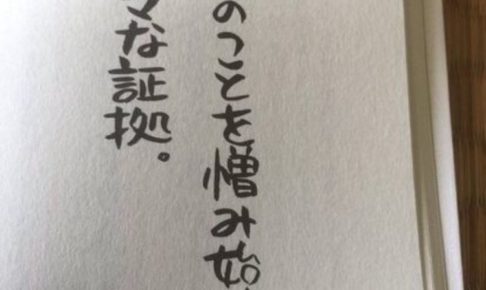 のことを憎み始
マな証拠。